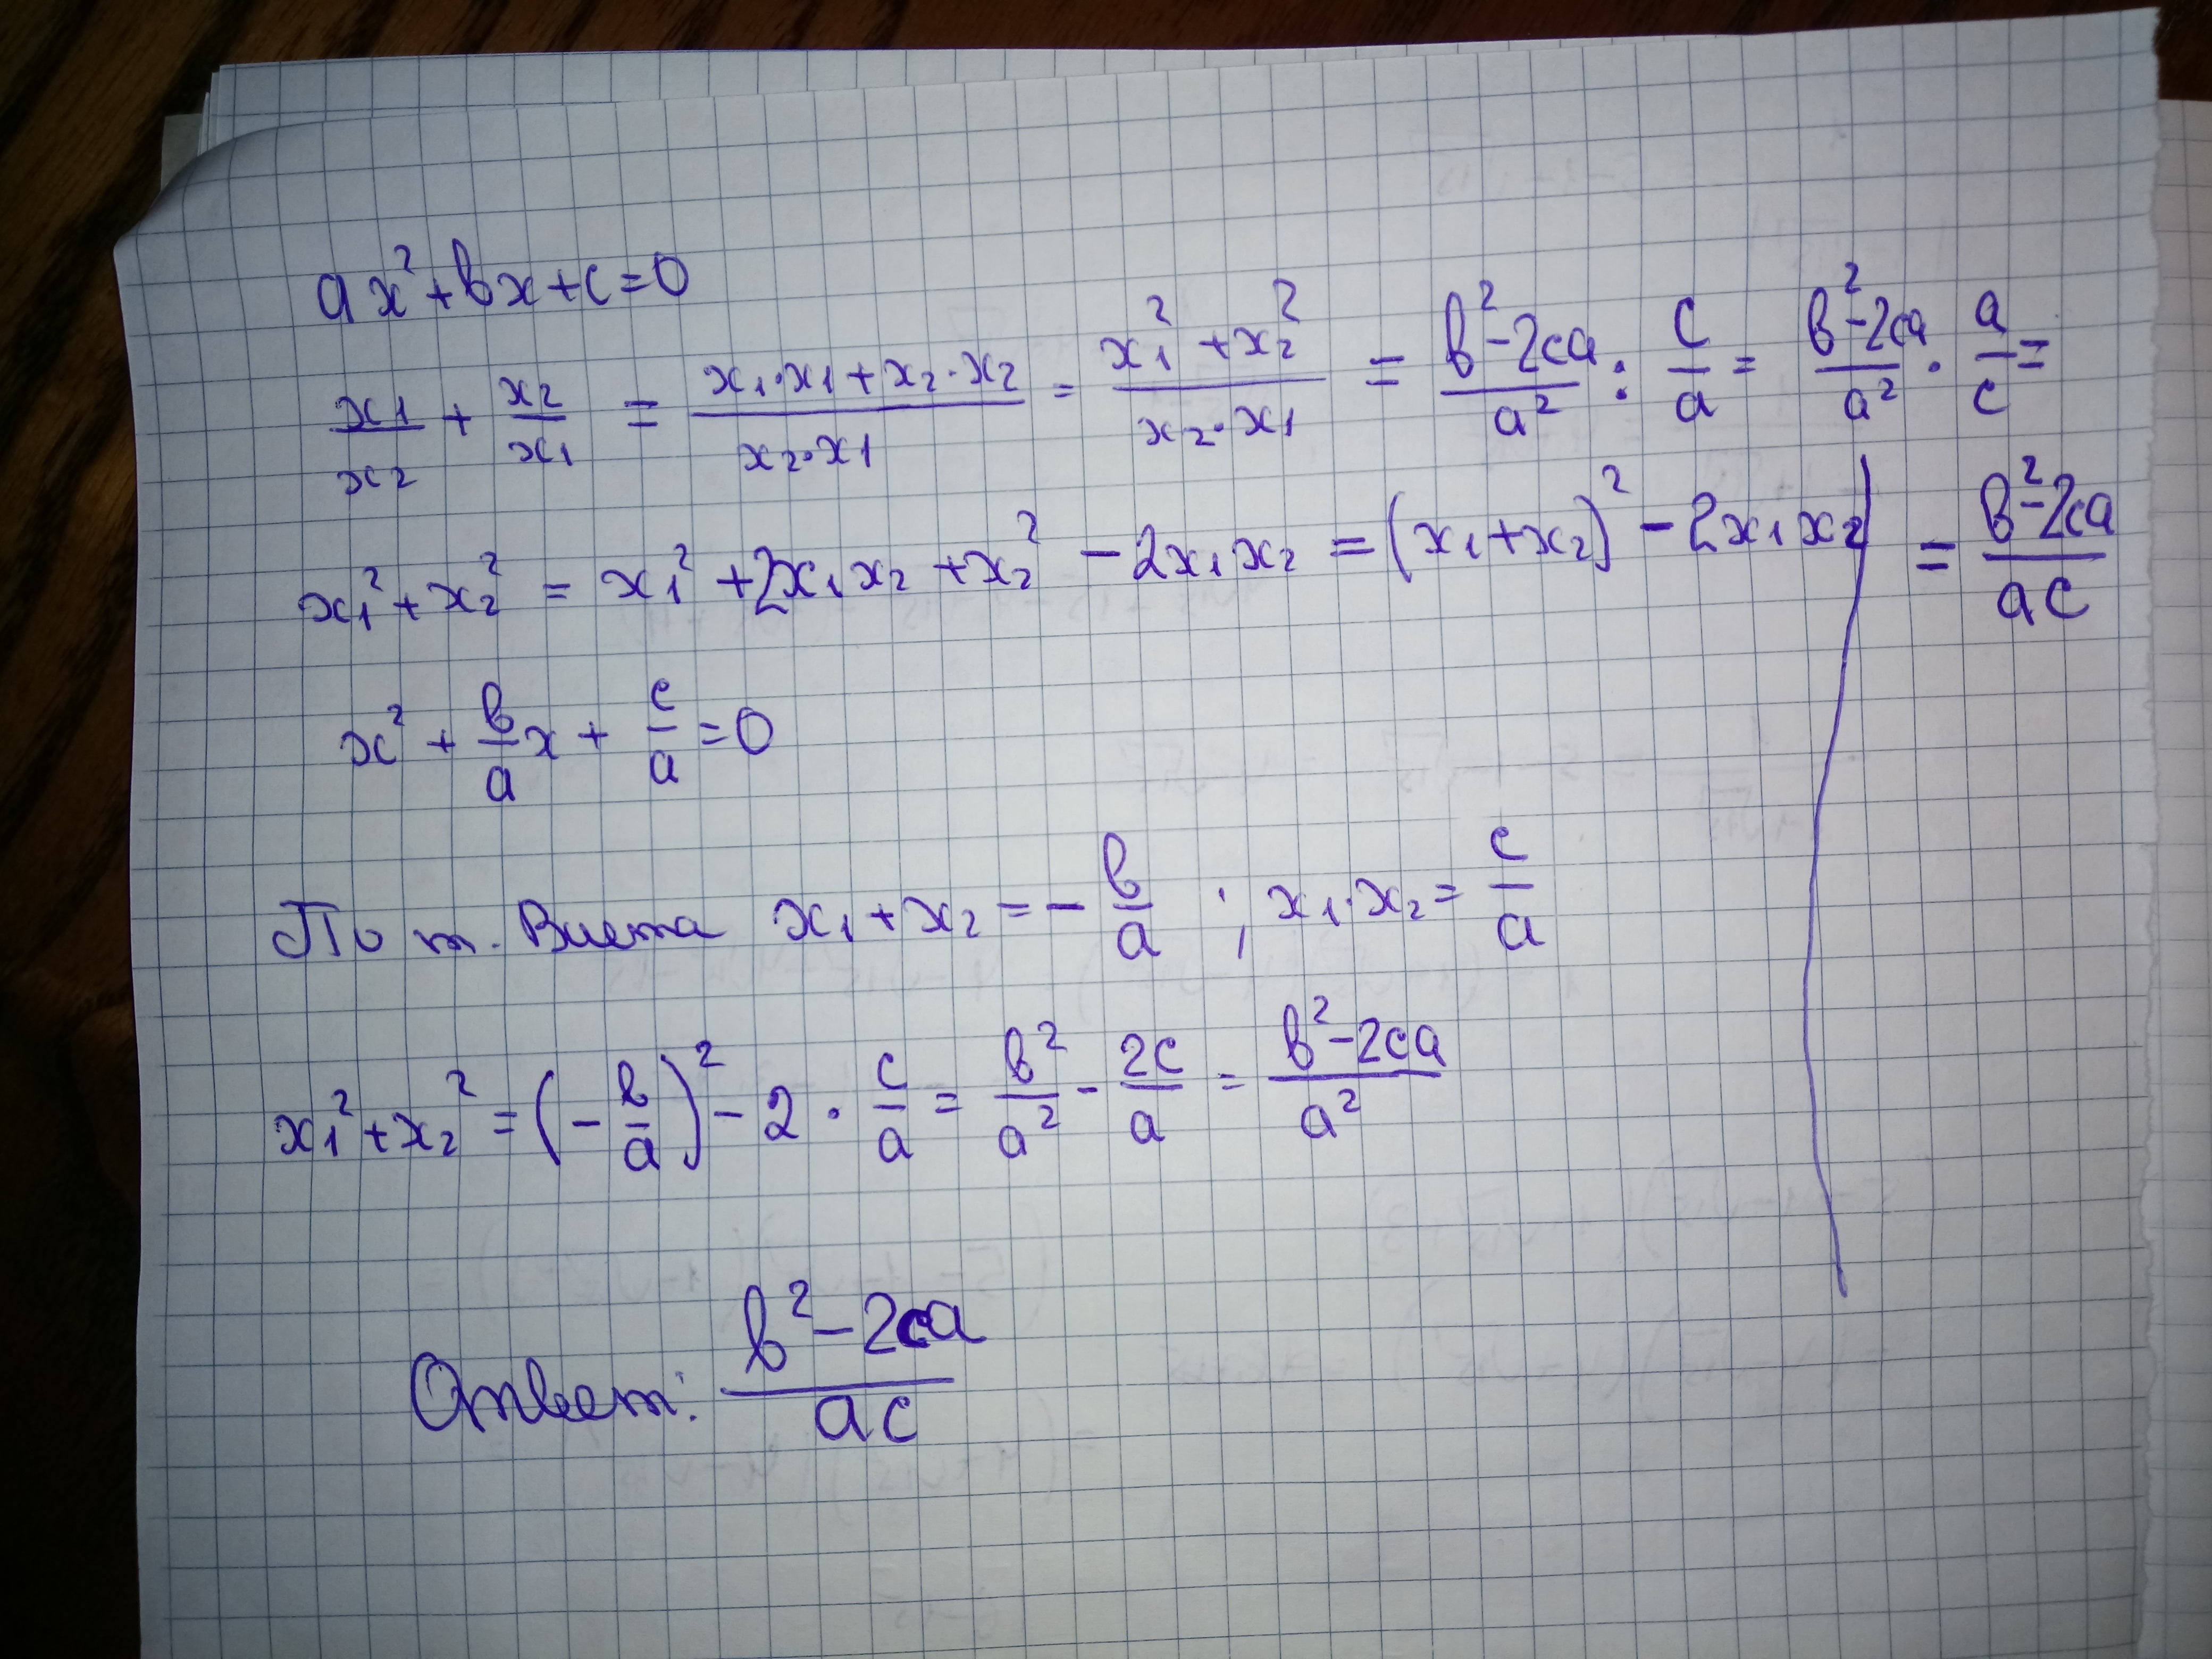 ax² + bx + c = 0
x₁/x₂ + x₂/x₁ = (x₁·x₁ + x₂·x₂)/(x₂·x₁) = (x₁² + x₂²)/(x₂·x₁) = (b² - 2ca)/a² : c/a = (b² - 2ca)/a² · a/c =
x₁² + x₂² = x₁² + 2x₁x₂ + x₂² - 2x₁x₂ = (x₁ + x₂)² - 2x₁x₂
= (b² - 2ca)/(ac)
x² + b/a x + c/a = 0
По т. Виета x₁ + x₂ = - b/a ; x₁·x₂ = c/a
x₁² + x₂² = (- b/a)² - 2 · c/a = b²/a² - 2c/a = (b² - 2ca)/a²
Ответ: (b² - 2ca)/(ac)